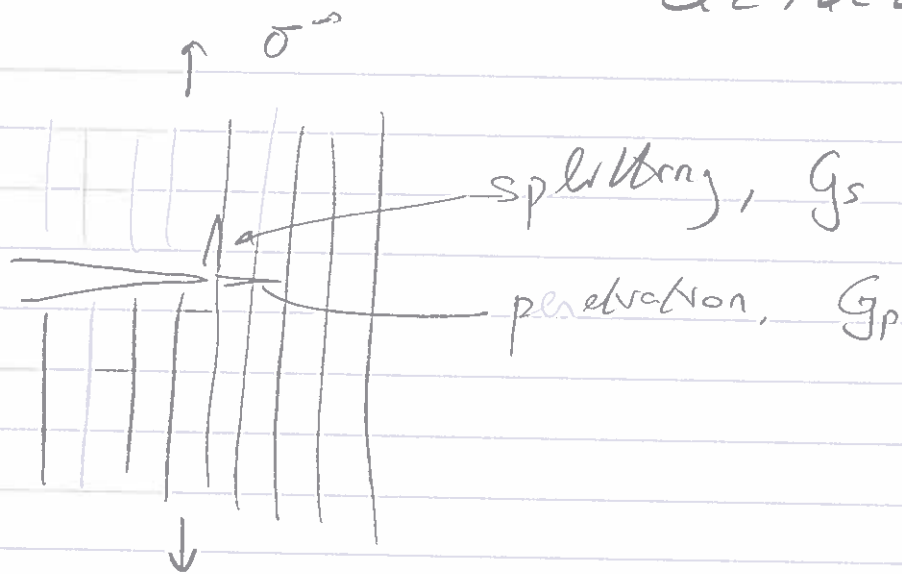 σ^∞
splitting, G_s
penetration, G_p